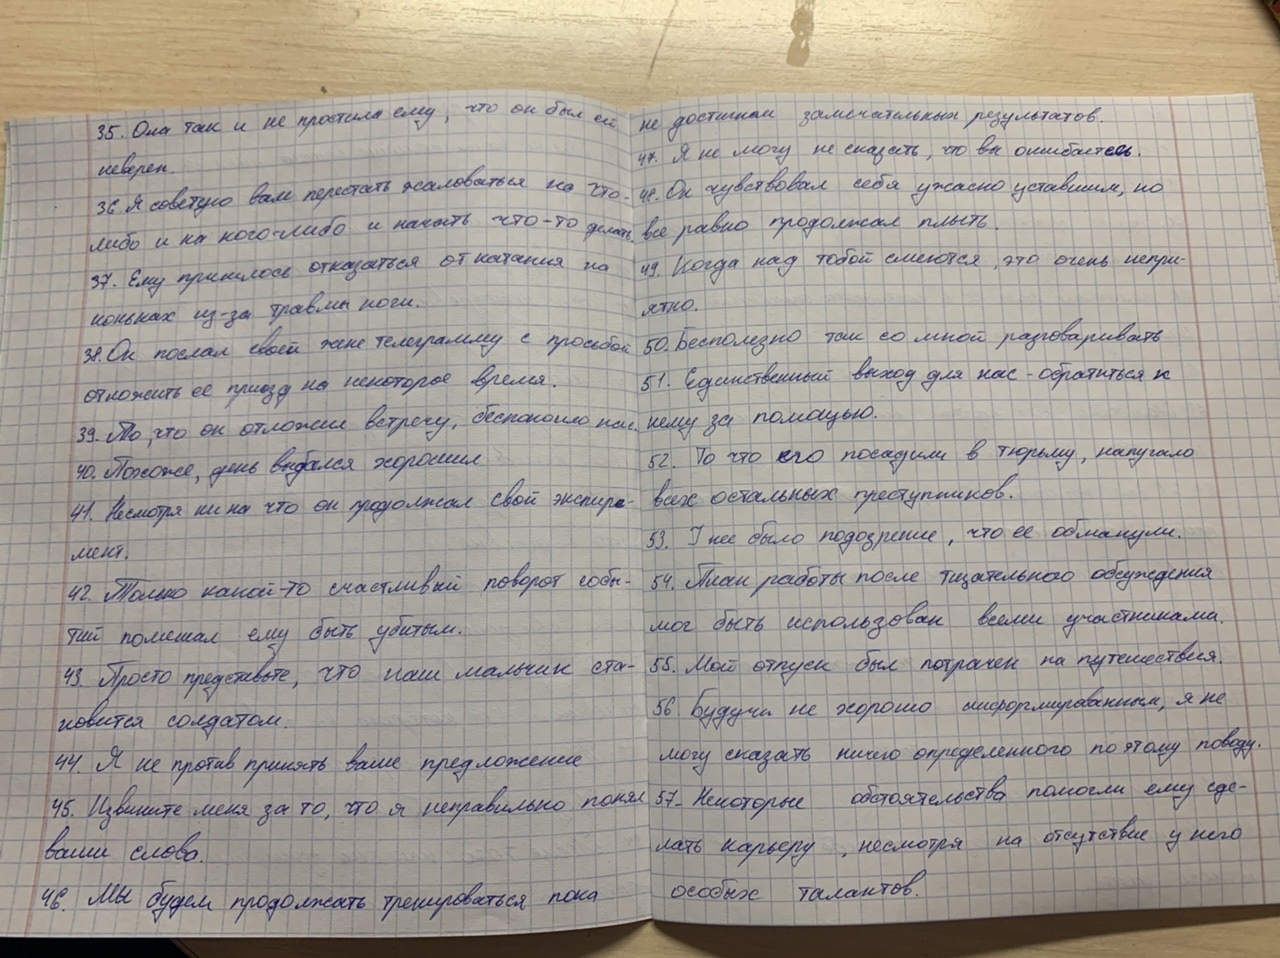 35. Она так и не простила ему, что он был ей
неверен.
36. Я советую вам перестать жаловаться на что-
либо и на кого-либо и начать что-то делать.
37. Ему пришлось отказаться от катания на
коньках из-за травмы ноги.
38. Он послал своей жене телеграмму с просьбой
отложить ее приезд на некоторое время.
39. То, что он отложил встречу, беспокоило нас.
40. Похоже, день выдался хорошим
41. Несмотря ни на что он продолжал свой экспире-
мент.
42. Только какой-то счастливый поворот собы-
тий помешал ему быть убитым.
43. Просто представьте, что наш мальчик ста-
новится солдатом.
44. Я не против принять ваше предложение
45. Извините меня за то, что я неправильно понял
ваши слова.
46. Мы будем продолжать тренироваться пока
не достигнем замечательных результатов.
47. Я не могу не сказать, что вы ошибаетесь.
48. Он чувствовал себя ужасно уставшим, но
все равно продолжал плыть.
49. Когда над тобой смеются, это очень непри-
ятно.
50. Бесполезно так со мной разговаривать
51. Единственный выход для нас - обратиться к
нему за помощью.
52. То что его посадили в тюрьму, напугало
всех остальных преступников.
53. У нее было подозрение, что ее обманули.
54. План работы после тщательного обсуждения
мог быть использован всеми участниками.
55. Мой отпуск был потрачен на путешествия.
56 Будучи не хорошо информированным, я не
могу сказать ничего определенного по этому поводу.
57- Некоторые обстоятельства помогли ему сде-
лать карьеру, несмотря на отсутствие у него
особых талантов.